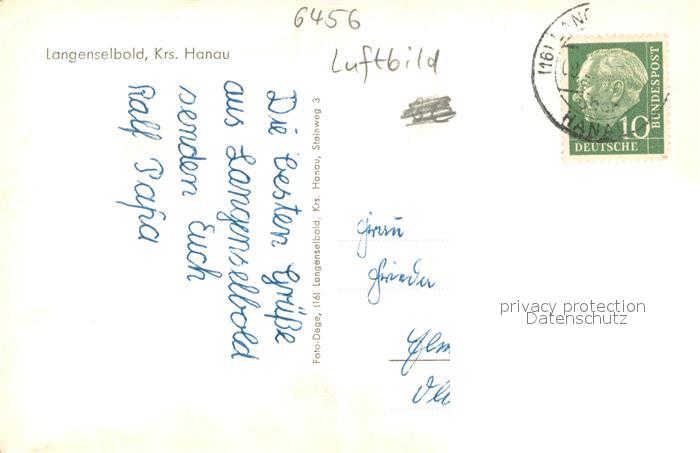 6456
Langenselbold, Krs. Hanau
Luftbild
Die besten Grüße
aus Langenselbold
senden Euch
Ralf Papa
Foto-Dege, (16) Langenselbold, Krs. Hanau, Steinweg 3
(16) LANG
HANA
10
DEUTSCHE
BUNDESPOST
Frau
Frieda
privacy protection
Datenschutz